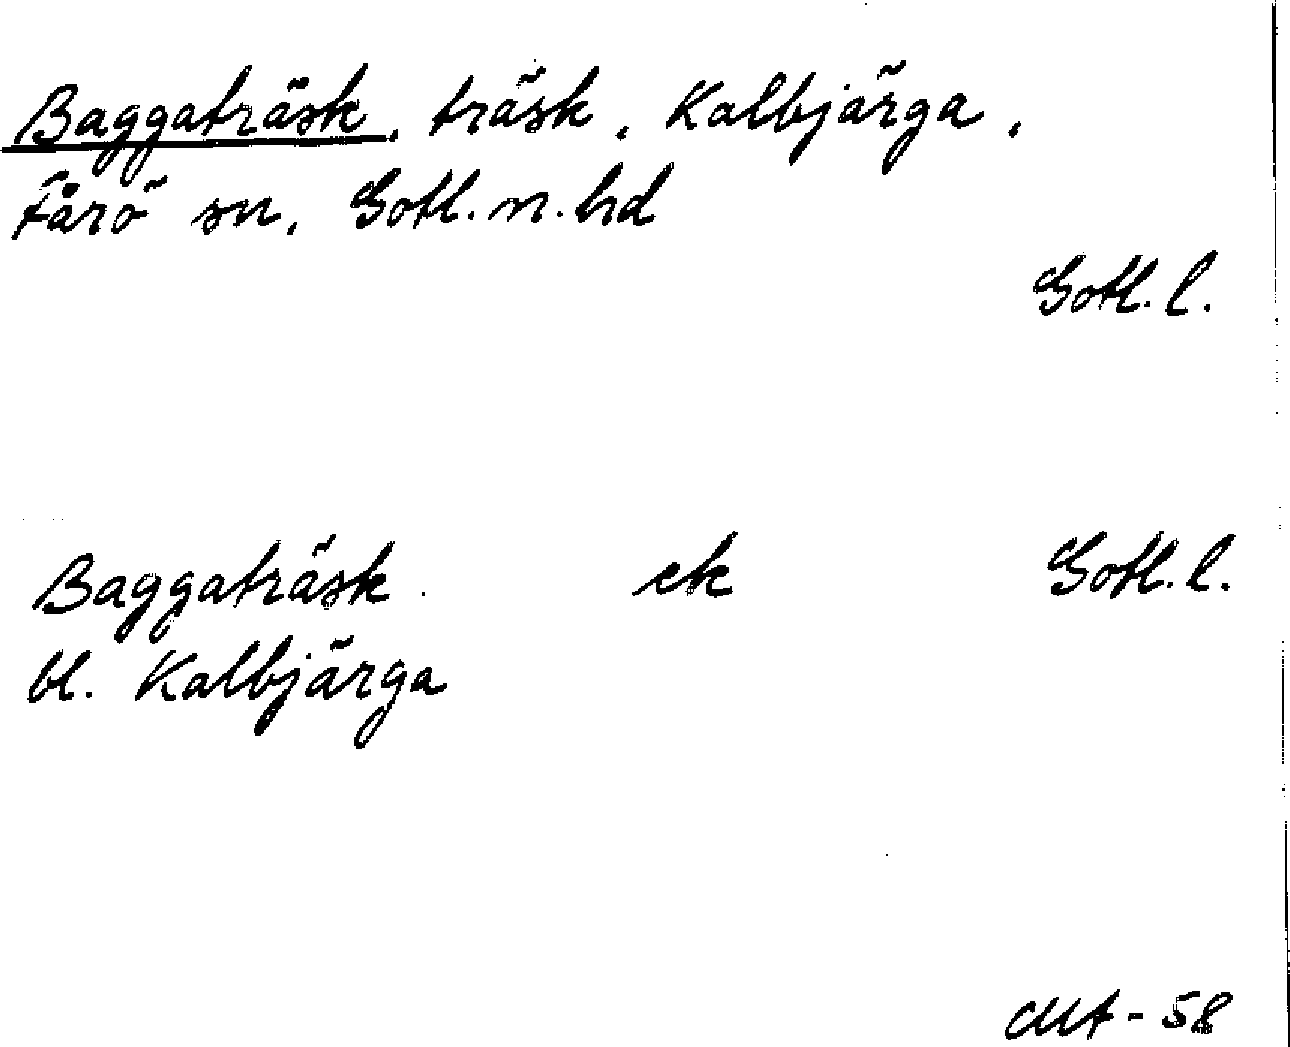 Baggaträsk, träsk, Kalbjärga,
Fårö sn, Gotl. n. hd
Gotl. l.
Baggaträsk ek Gotl. l.
bl. Kalbjärga
MA-58